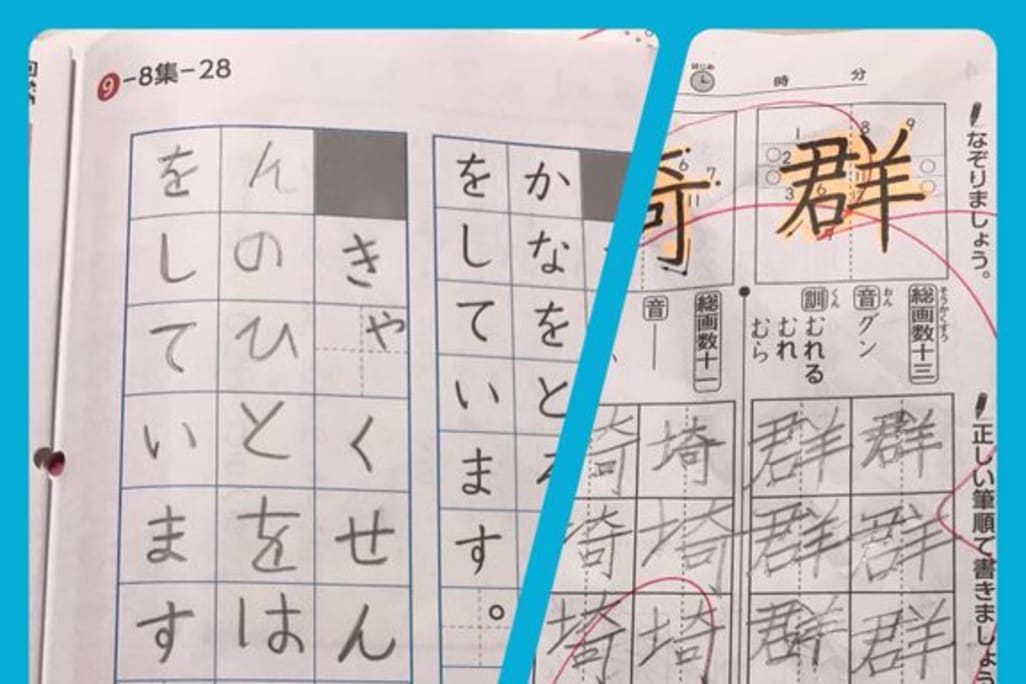 9-8集-28
かなをと
をしています。
きゃくせん
んのひとをは
をしています
はじめ 時 分
なぞりましょう。
群
そうかくすう
総画数十三
おん
音 グン
くん
訓 むれる
むれ
むら
埼
総画数十一
音 ―
正しい筆順で書きましょう
群群群
群群群
埼埼埼
埼埼埼